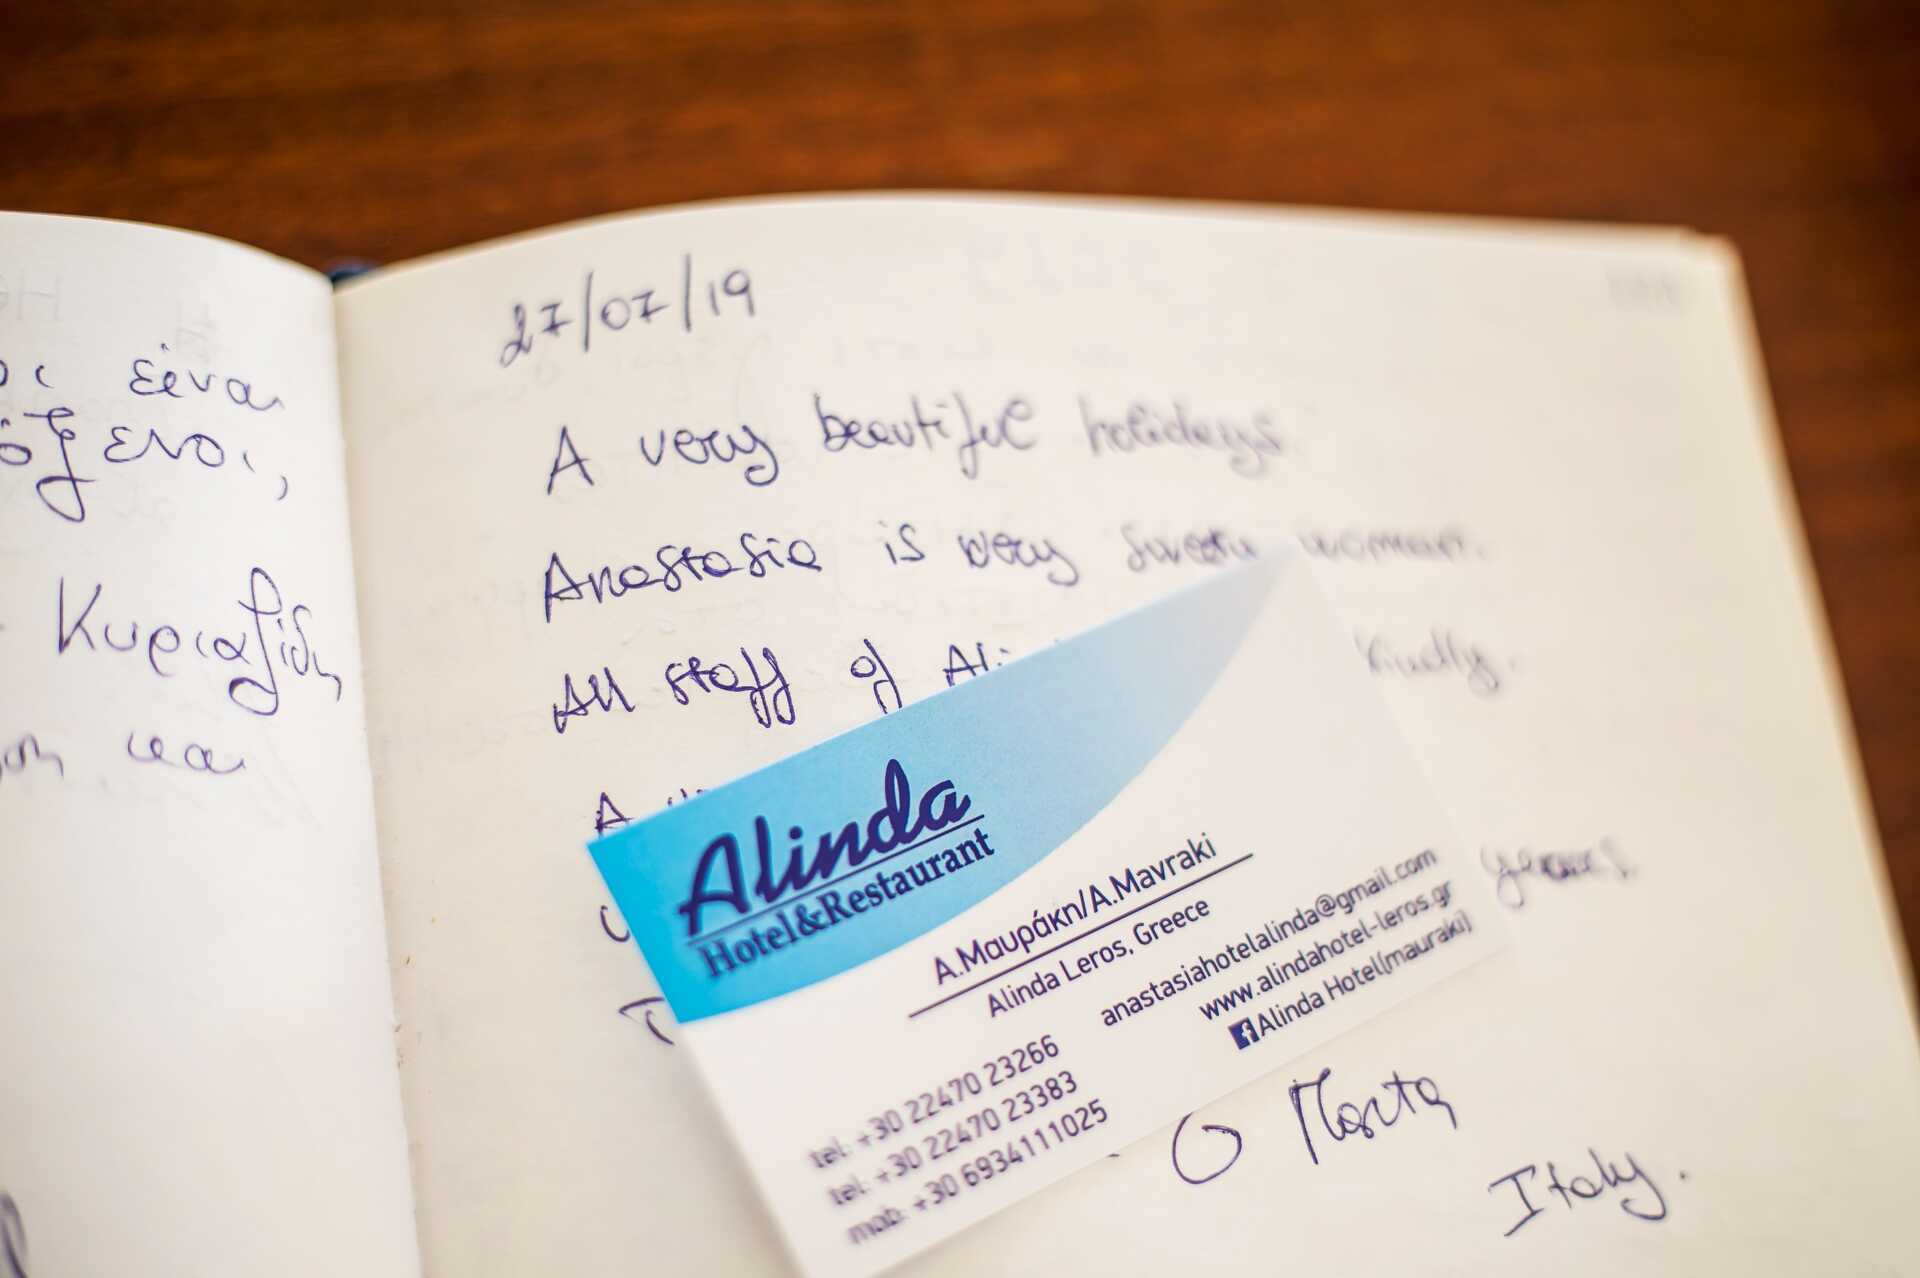 είναι
Κυριαζίδη
και
27/07/19
A very beautiful holidays
Anastasia is very sweet woman.
All staff of Ali
kindly.
A
years.
T
O Marta
Italy.
Alinda
Hotel&Restaurant
Α.Μαυράκη/A.Mavraki
Alinda Leros, Greece
anastasiahotelalinda@gmail.com
www.alindahotel-leros.gr
Alinda Hotel(mauraki)
tel: +30 22470 23266
tel: +30 22470 23383
mob: +30 6934111025